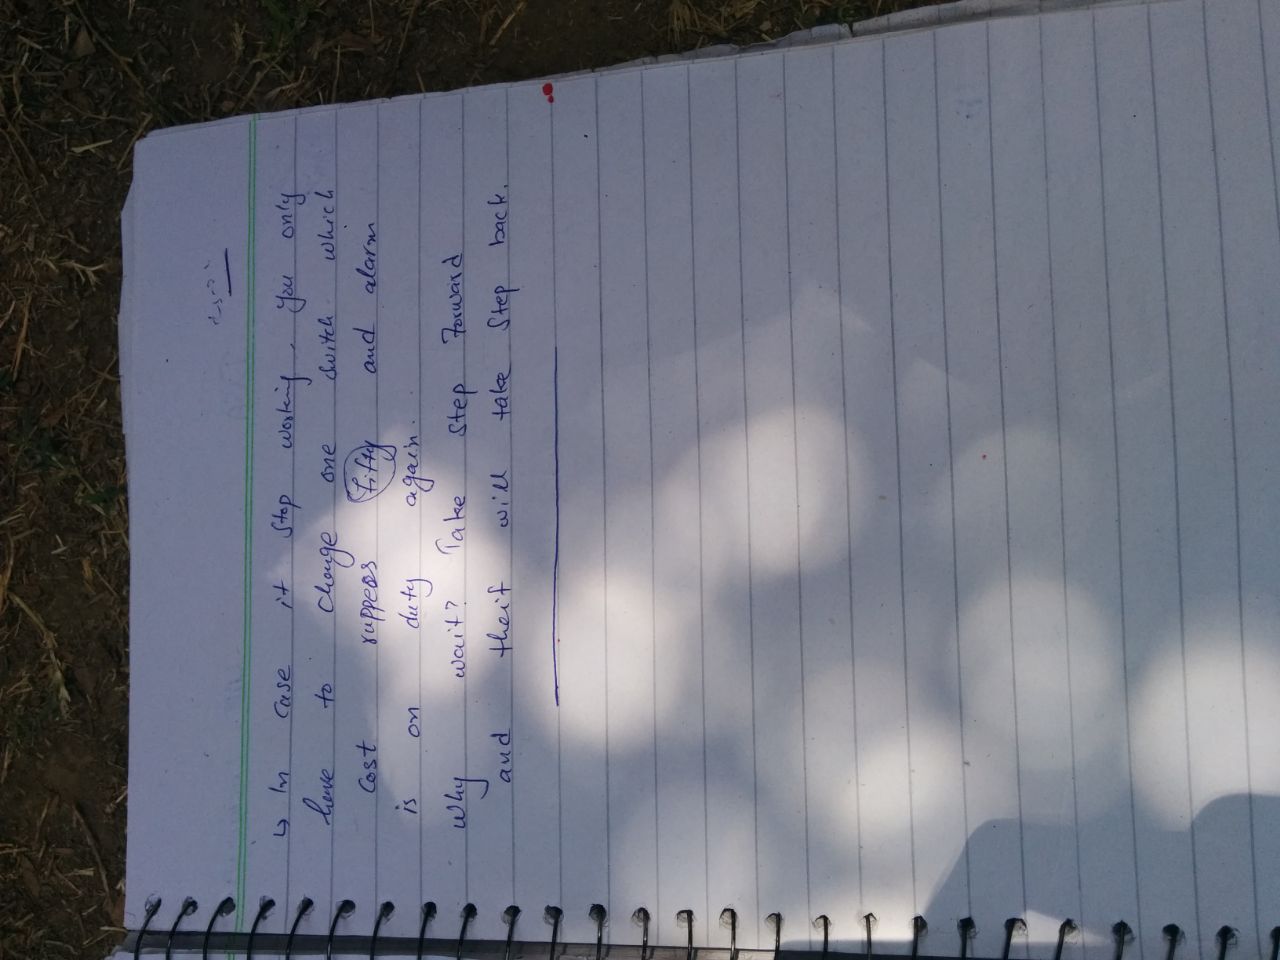 ↳ In case it stop working. You only
have to change one switch which
cost ruppees fifty and alarm
is on duty again.
Why wait? Take step forward
and theif will take step back.